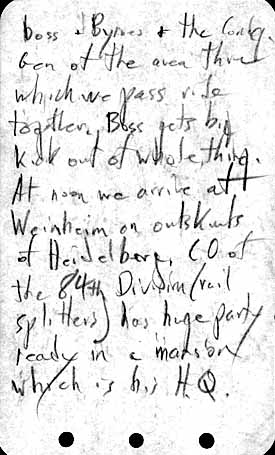 boss & Byrnes & the Comdg.
Gen of the area thru
which we pass ride
together, Boss gets big
kick out of whole thing.
At noon we arrive at
Weinheim on outskirts
of Heidelberg, CO of
the 84th Division (rail
splitters) has huge party
ready in a mansion
which is his H.Q.